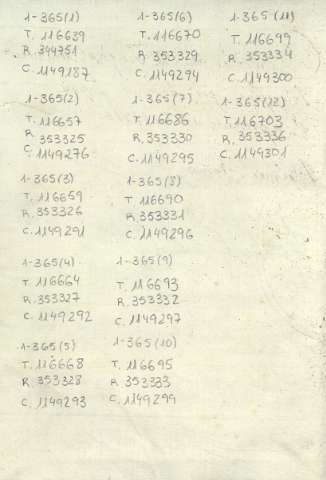 1-365(1)
T. 116639
R. 344751
C. 1149187
1-365(2)
T. 116657
R. 353325
C. 1149276
1-365(3)
T. 116659
R. 353326
C. 1149291
1-365(4)
T. 116664
R. 353327
C. 1149292
1-365(5)
T. 116668
R. 353328
C. 1149293
1-365(6)
T. 116670
R. 353329
C. 1149294
1-365(7)
T. 116686
R. 353330
C. 1149295
1-365(8)
T. 116690
R. 353331
C. 1149296
1-365(9)
T. 116693
R. 353332
C. 1149297
1-365(10)
T. 116695
R. 353333
C. 1149299
1-365(11)
T. 116699
R. 353334
C. 1149300
1-365(12)
T. 116703
R. 353336
C. 1149301